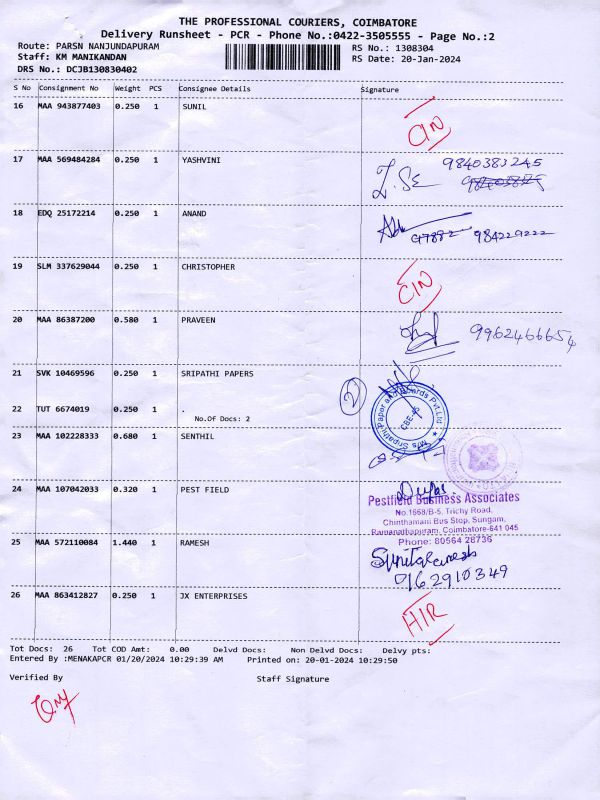 THE PROFESSIONAL COURIERS, COIMBATORE
Delivery Runsheet - PCR - Phone No.:0422-3505555 - Page No.:2
Route: PARSN NANJUNDAPURAM
RS No.: 1308304
Staff: KM MANIKANDAN
RS Date: 20-Jan-2024
DRS No.: DCJB130830402
S No Consignment No Weight PCS Consignee Details Signature
16 MAA 943877403 0.250 1 SUNIL
CIN
17 MAA 569484284 0.250 1 YASHVINI
9840383245
18 EDQ 25172214 0.250 1 ANAND
984229222
19 SLM 337629044 0.250 1 CHRISTOPHER
CIN
20 MAA 86387200 0.580 1 PRAVEEN
9962466654
21 SVK 10469596 0.250 1 SRIPATHI PAPERS
2
22 TUT 6674019 0.250 1 .
No.Of Docs: 2
M/s Sripathi Paper and Boards Pvt.Ltd
CBE-45
23 MAA 102228333 0.680 1 SENTHIL
24 MAA 107042033 0.320 1 PEST FIELD
Pestfield Business Associates
No.1668/B-5, Trichy Road,
Chinthamani Bus Stop, Sungam,
Ramanathapuram, Coimbatore-641 045
Phone: 80564 28736
25 MAA 572110084 1.440 1 RAMESH
9162910349
26 MAA 863412827 0.250 1 JX ENTERPRISES
HIR
Tot Docs: 26 Tot COD Amt: 0.00 Delvd Docs: Non Delvd Docs: Delvy pts:
Entered By :MENAKAPCR 01/20/2024 10:29:39 AM Printed on: 20-01-2024 10:29:50
Verified By Staff Signature